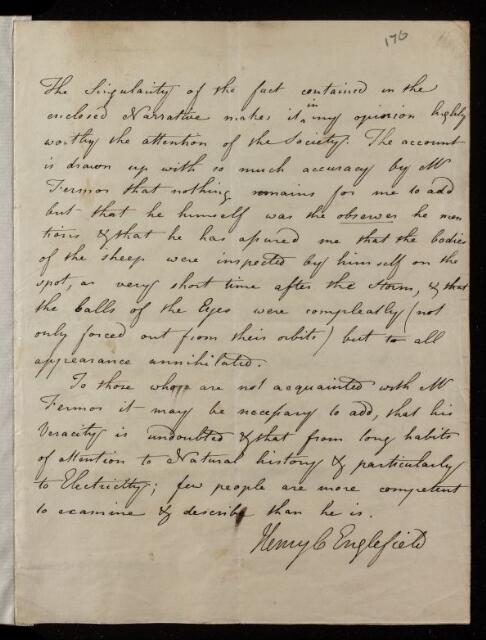 176
The Singularity of the fact contained in the
enclosed Narrative makes it in my opinion highly
worthy the attention of the Society. The account
is drawn up with so much accuracy by Mr
Fermor that nothing remains for me to add
but that he himself was the observer he men
tions & that he has assured me that the bodies
of the sheep were inspected by himself on the
spot, a very short time after the Storm, & that
the balls of the Eyes were compleatly (not
only forced out from their orbits) but to all
appearance annihilated.
To those who are not acquainted with Mr
Fermor it may be necessary to add, that his
Veracity is undoubted & that from long habits
of attention to Natural history & particularly
to Electricity; few people are more competent
to examine & describe than he is.
Henry C Englefield